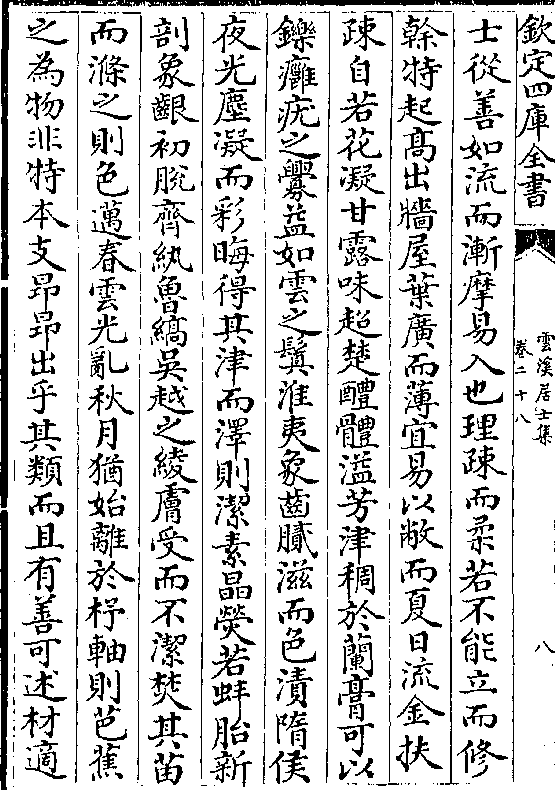 欽定四庫全書
雲溪居士集
卷二十八
八
士從善如流而漸摩易入也理疎而柔若不能立而修
榦特起髙出牆屋葉廣而薄宜易以敝而夏日流金扶
疎自若花凝甘露味超楚醴體溢芳津稠於蘭膏可以
鑠癰疣之釁益如雲之鬒淮夷象齒膩滋而色漬隋侯
夜光塵凝而彩晦得其津而澤則潔素晶熒若蚌胎新
剖象齦初脫齊紈魯縞吳越之綾膚受而不潔焚其苗
而滌之則色邁春雲光亂秋月猶始離於杼軸則芭蕉
之為物非特本支昂昂出乎其類而且有善可述材適